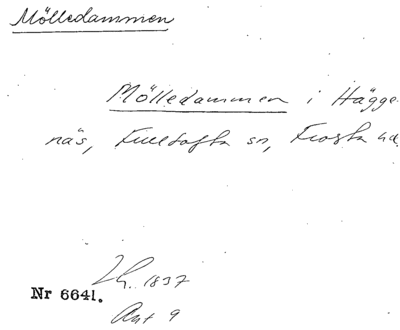 Mölledammen
Mölledammen i Hägge-
näs, Fulltofta sn, Frosta hd,
1837
Nr 6641.
Akt 9